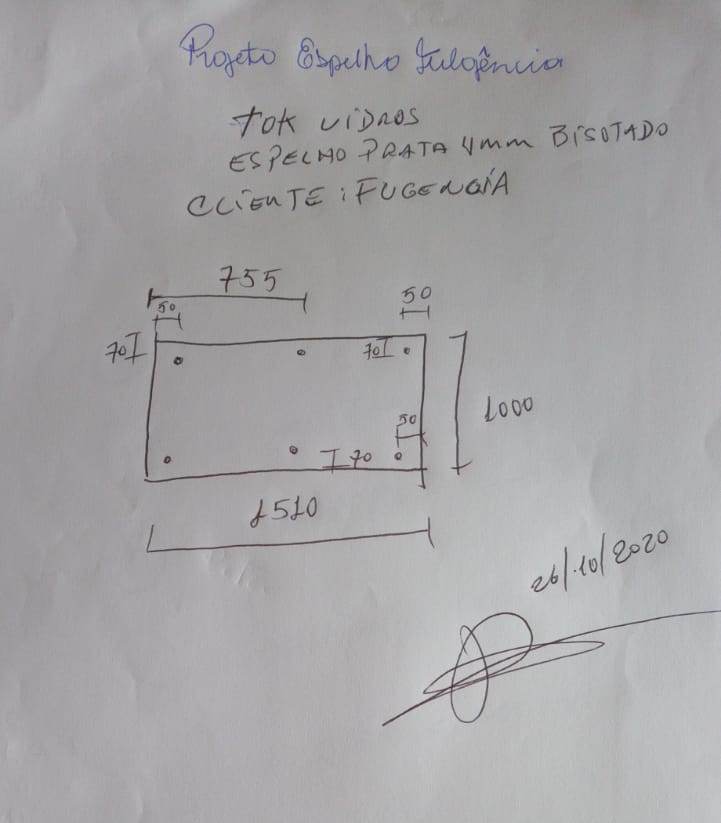 Projeto Espelho Fulgência
TOK VIDROS
ESPELHO PRATA 4mm BISOTADO
CLIENTE: FUGENCIA
755
50
50
70
70
1000
50
70
1510
26/10/2020